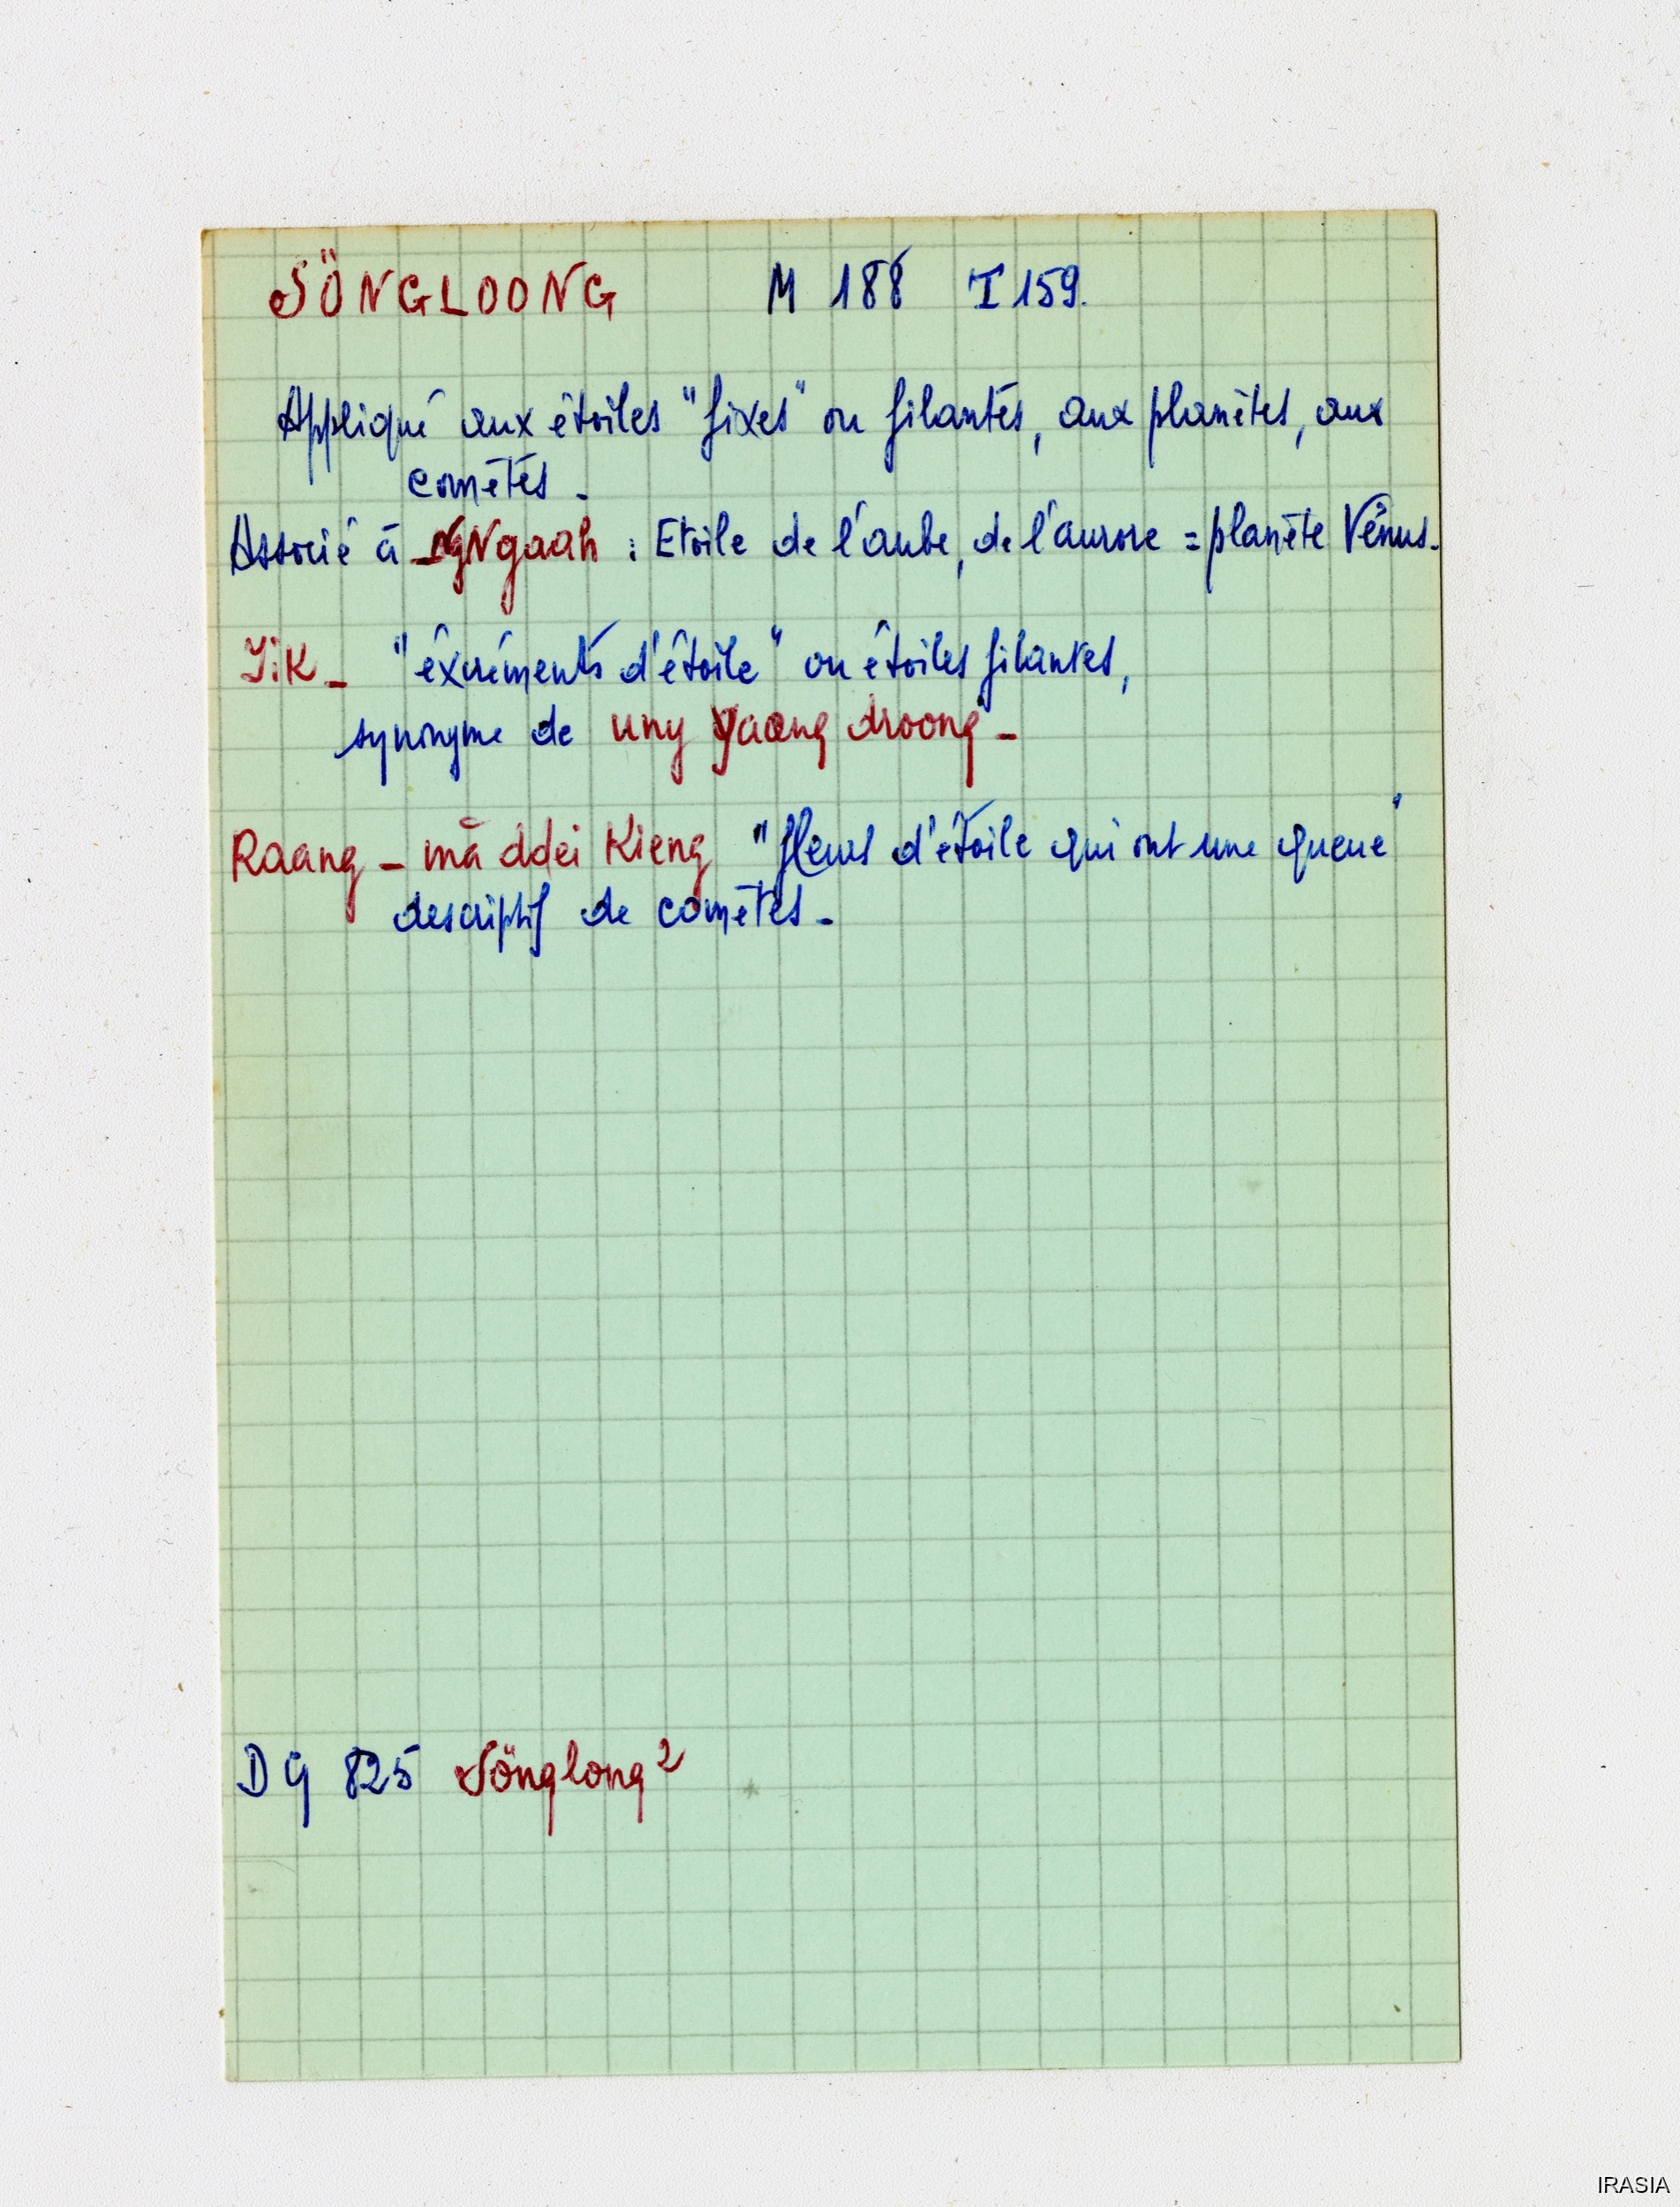 SÖNGLOONG M 188 I 159.
Appliqué aux étoiles "fixes" ou filantes, aux planètes, aux
comètes -
Associé à - Ngaah : Etoile de l'aube, de l'aurore = planète Vénus.
"éxcréments d'étoile" ou étoiles filantes,
synonyme de uny yaang droong -
Raang - mă ddei Kieng "fleurs d'étoile qui ont une queue"
descriptif de comètes -
DG 825 Sönglong²
IRASIA